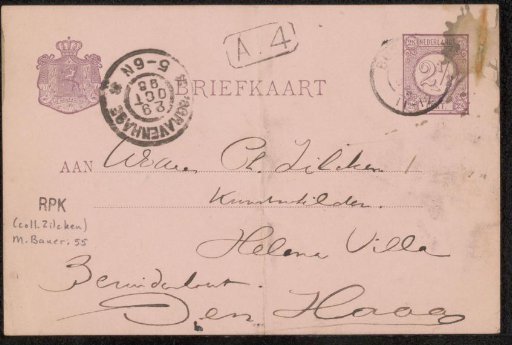 A.4
NEDERLAND
2½
'S GRAVENHAGE
5-6N
29
OCT
95
BRIEFKAART
AAN
Ch. Zilcken
Kunstschilder.
RPK
(coll. Zilcken)
M. Bauer. 55
Helena Villa
Bezuidenhout.
Den Haag